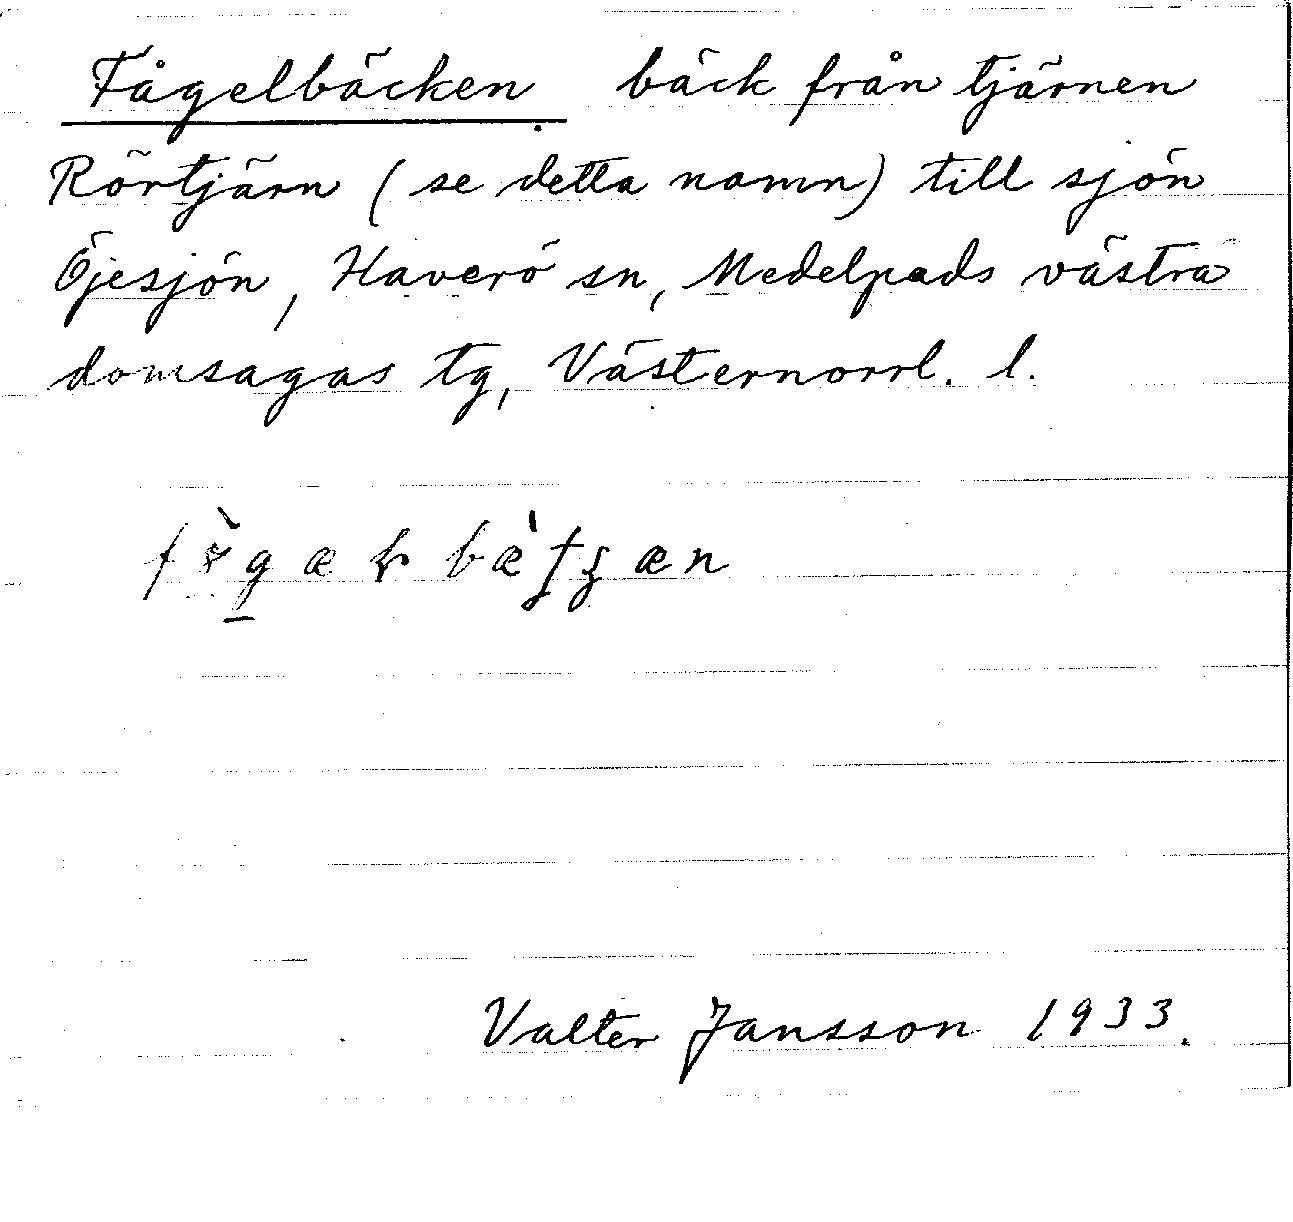 Fågelbäcken bäck från tjärnen
Rörtjärn (se detta namn) till sjön
Öjesjön, Haverö sn, Medelpads västra
domsagas tg, Västernorrl. l.
Valter Jansson 1933.